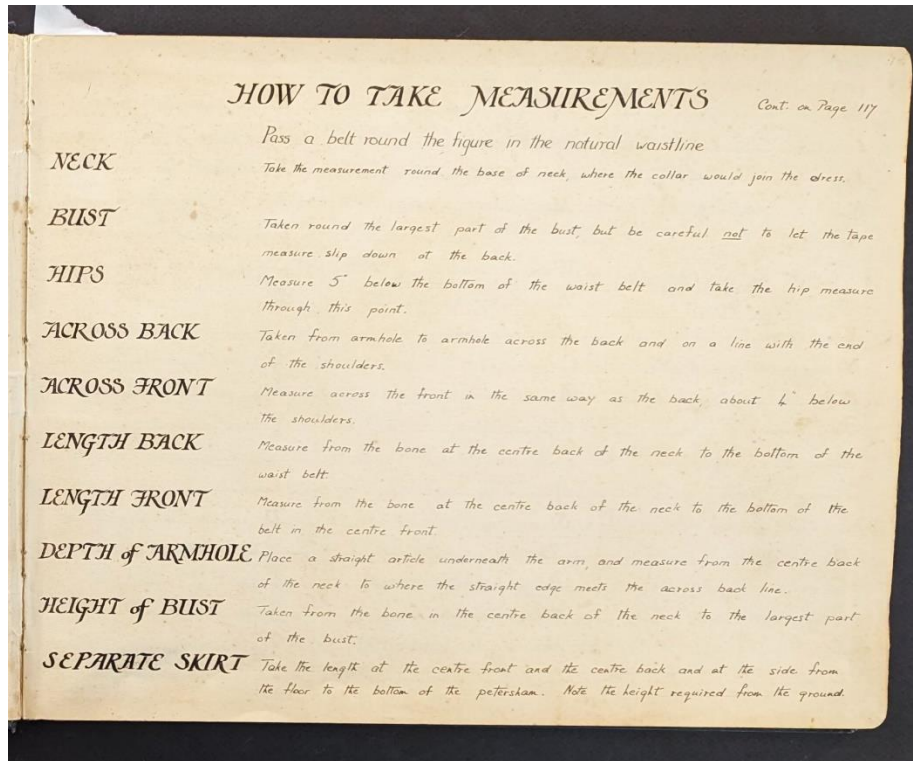 HOW TO TAKE MEASUREMENTS Cont. on Page 117
Pass a belt round the figure in the natural waistline
NECK Take the measurement round the base of neck, where the collar would join the dress.
BUST Taken round the largest part of the bust, but be careful not to let the tape
measure slip down at the back.
HIPS Measure 5" below the bottom of the waist belt and take the hip measure
through this point.
ACROSS BACK Taken from armhole to armhole across the back and on a line with the end
of the shoulders.
ACROSS FRONT Measure across the front in the same way as the back, about 4" below
the shoulders.
LENGTH BACK Measure from the bone at the centre back of the neck to the bottom of the
waist belt.
LENGTH FRONT Measure from the bone at the centre back of the neck to the bottom of the
belt in the centre front.
DEPTH of ARMHOLE Place a straight article underneath the arm, and measure from the centre back
of the neck to where the straight edge meets the across back line.
HEIGHT of BUST Taken from the bone in the centre back of the neck to the largest part
of the bust.
SEPARATE SKIRT Take the length at the centre front and the centre back and at the side from
the floor to the bottom of the petersham. Note the height required from the ground.